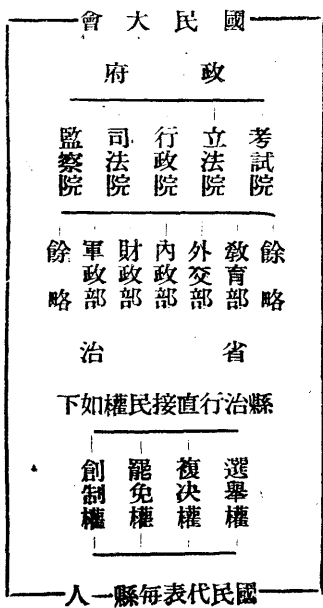 國民大會
政府
考試院
立法院
行政院
司法院
監察院
餘略
敎育部
外交部
內政部
財政部
軍政部
餘略
省治
縣治行直接民權如下
選舉權
複决權
罷免權
創制權
國民代表每縣一人